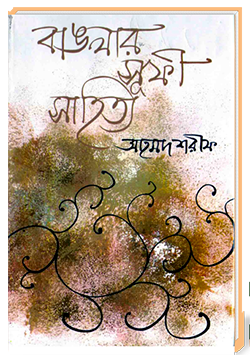 বাঙলার
সুফী
সাহিত্য
আহমদ শরীফ